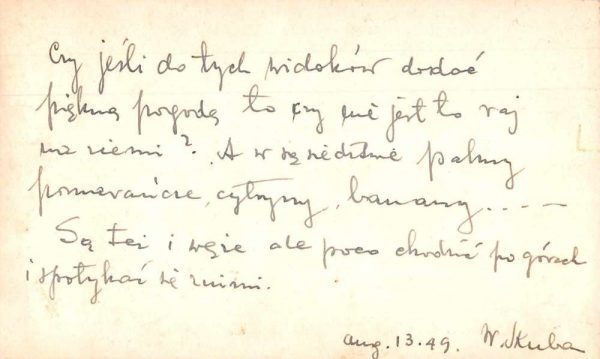 Czy jeśli do tych widoków dodać
piękną pogodę to czy nie jest to raj
na ziemi? A w sąsiedztwie palmy
pomarańcze, cytryny, banany....-
Są też i węże ale poco chodzić po górach
i spotykać się z nimi.
aug. 13.49. W. Skuba